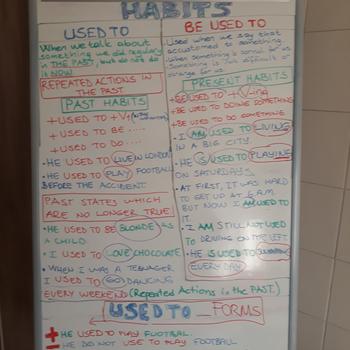 HABITS
USED TO
When we talk about
something we did regularly
in THE PAST, but do not do
it NOW
REPEATED ACTIONS IN
THE PAST
PAST HABITS
+ USED TO + V1
+ USED TO BE ....
+ USED TO DO....
• HE USED TO LIVE IN LONDON
• HE USED TO PLAY FOOTBALL
BEFORE THE ACCIDENT.
PAST STATES WHICH
ARE NO LONGER TRUE
• HE USED TO BE BLONDE AS
A CHILD.
• I USED TO LOVE CHOCOLATE
• WHEN I WAS A TEENAGER
I USED TO GO DANCING
EVERY WEEKEND (Repeated Actions in the PAST.)
BE USED TO
Used when we say that
accustomed to something
When something's normal for us
Something is not difficult or
strange for us
PRESENT HABITS
+ BE USED TO + V-ing
+ BE USED TO DOING SOMETHING
+ BE USED TO DO SOMETHING
• I AM USED TO LIVING
IN A BIG CITY
• HE IS USED TO PLAYING
ON SATURDAYS
• AT FIRST, IT WAS HARD
TO GET UP AT 6 AM
BUT NOW I AM USED TO
IT.
• I AM STILL NOT USED
TO DRIVING ON THE LEFT
• HE IS USED TO
EVERY DAY
USED TO FORMS
+ HE USED TO PLAY FOOTBALL.
- HE DID NOT USE TO PLAY FOOTBALL